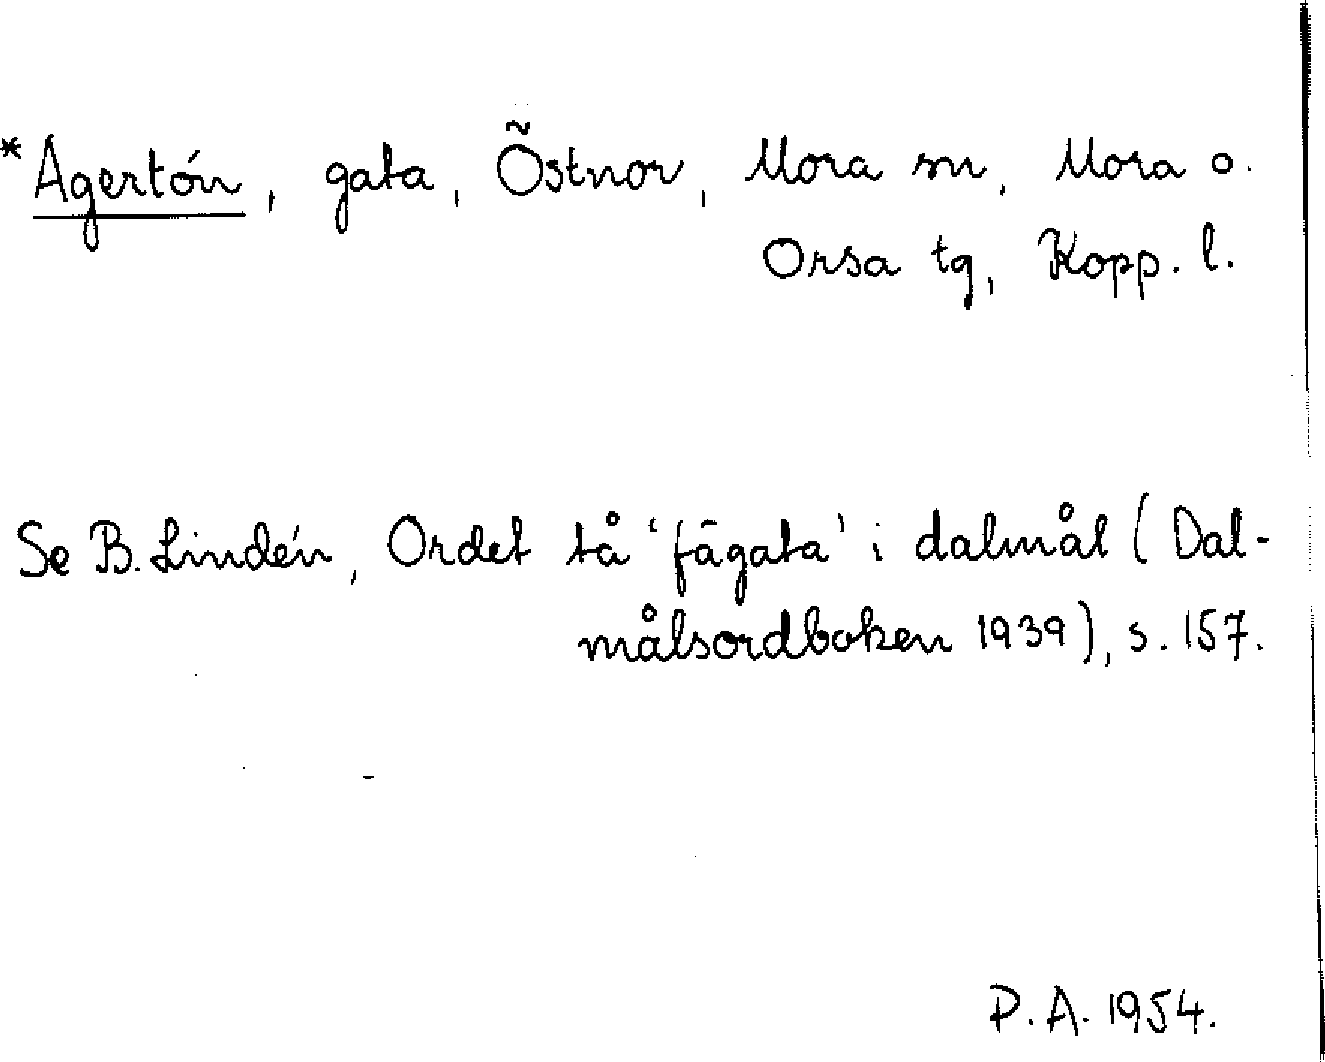 *Agertón, gata, Östnor, Mora sn, Mora o.
Orsa tg, Kopp. l.
Se B. Lindén, Ordet tå 'fägata' i dalmål (Dal-
målsordboken 1939), s. 157.
P.A. 1954.